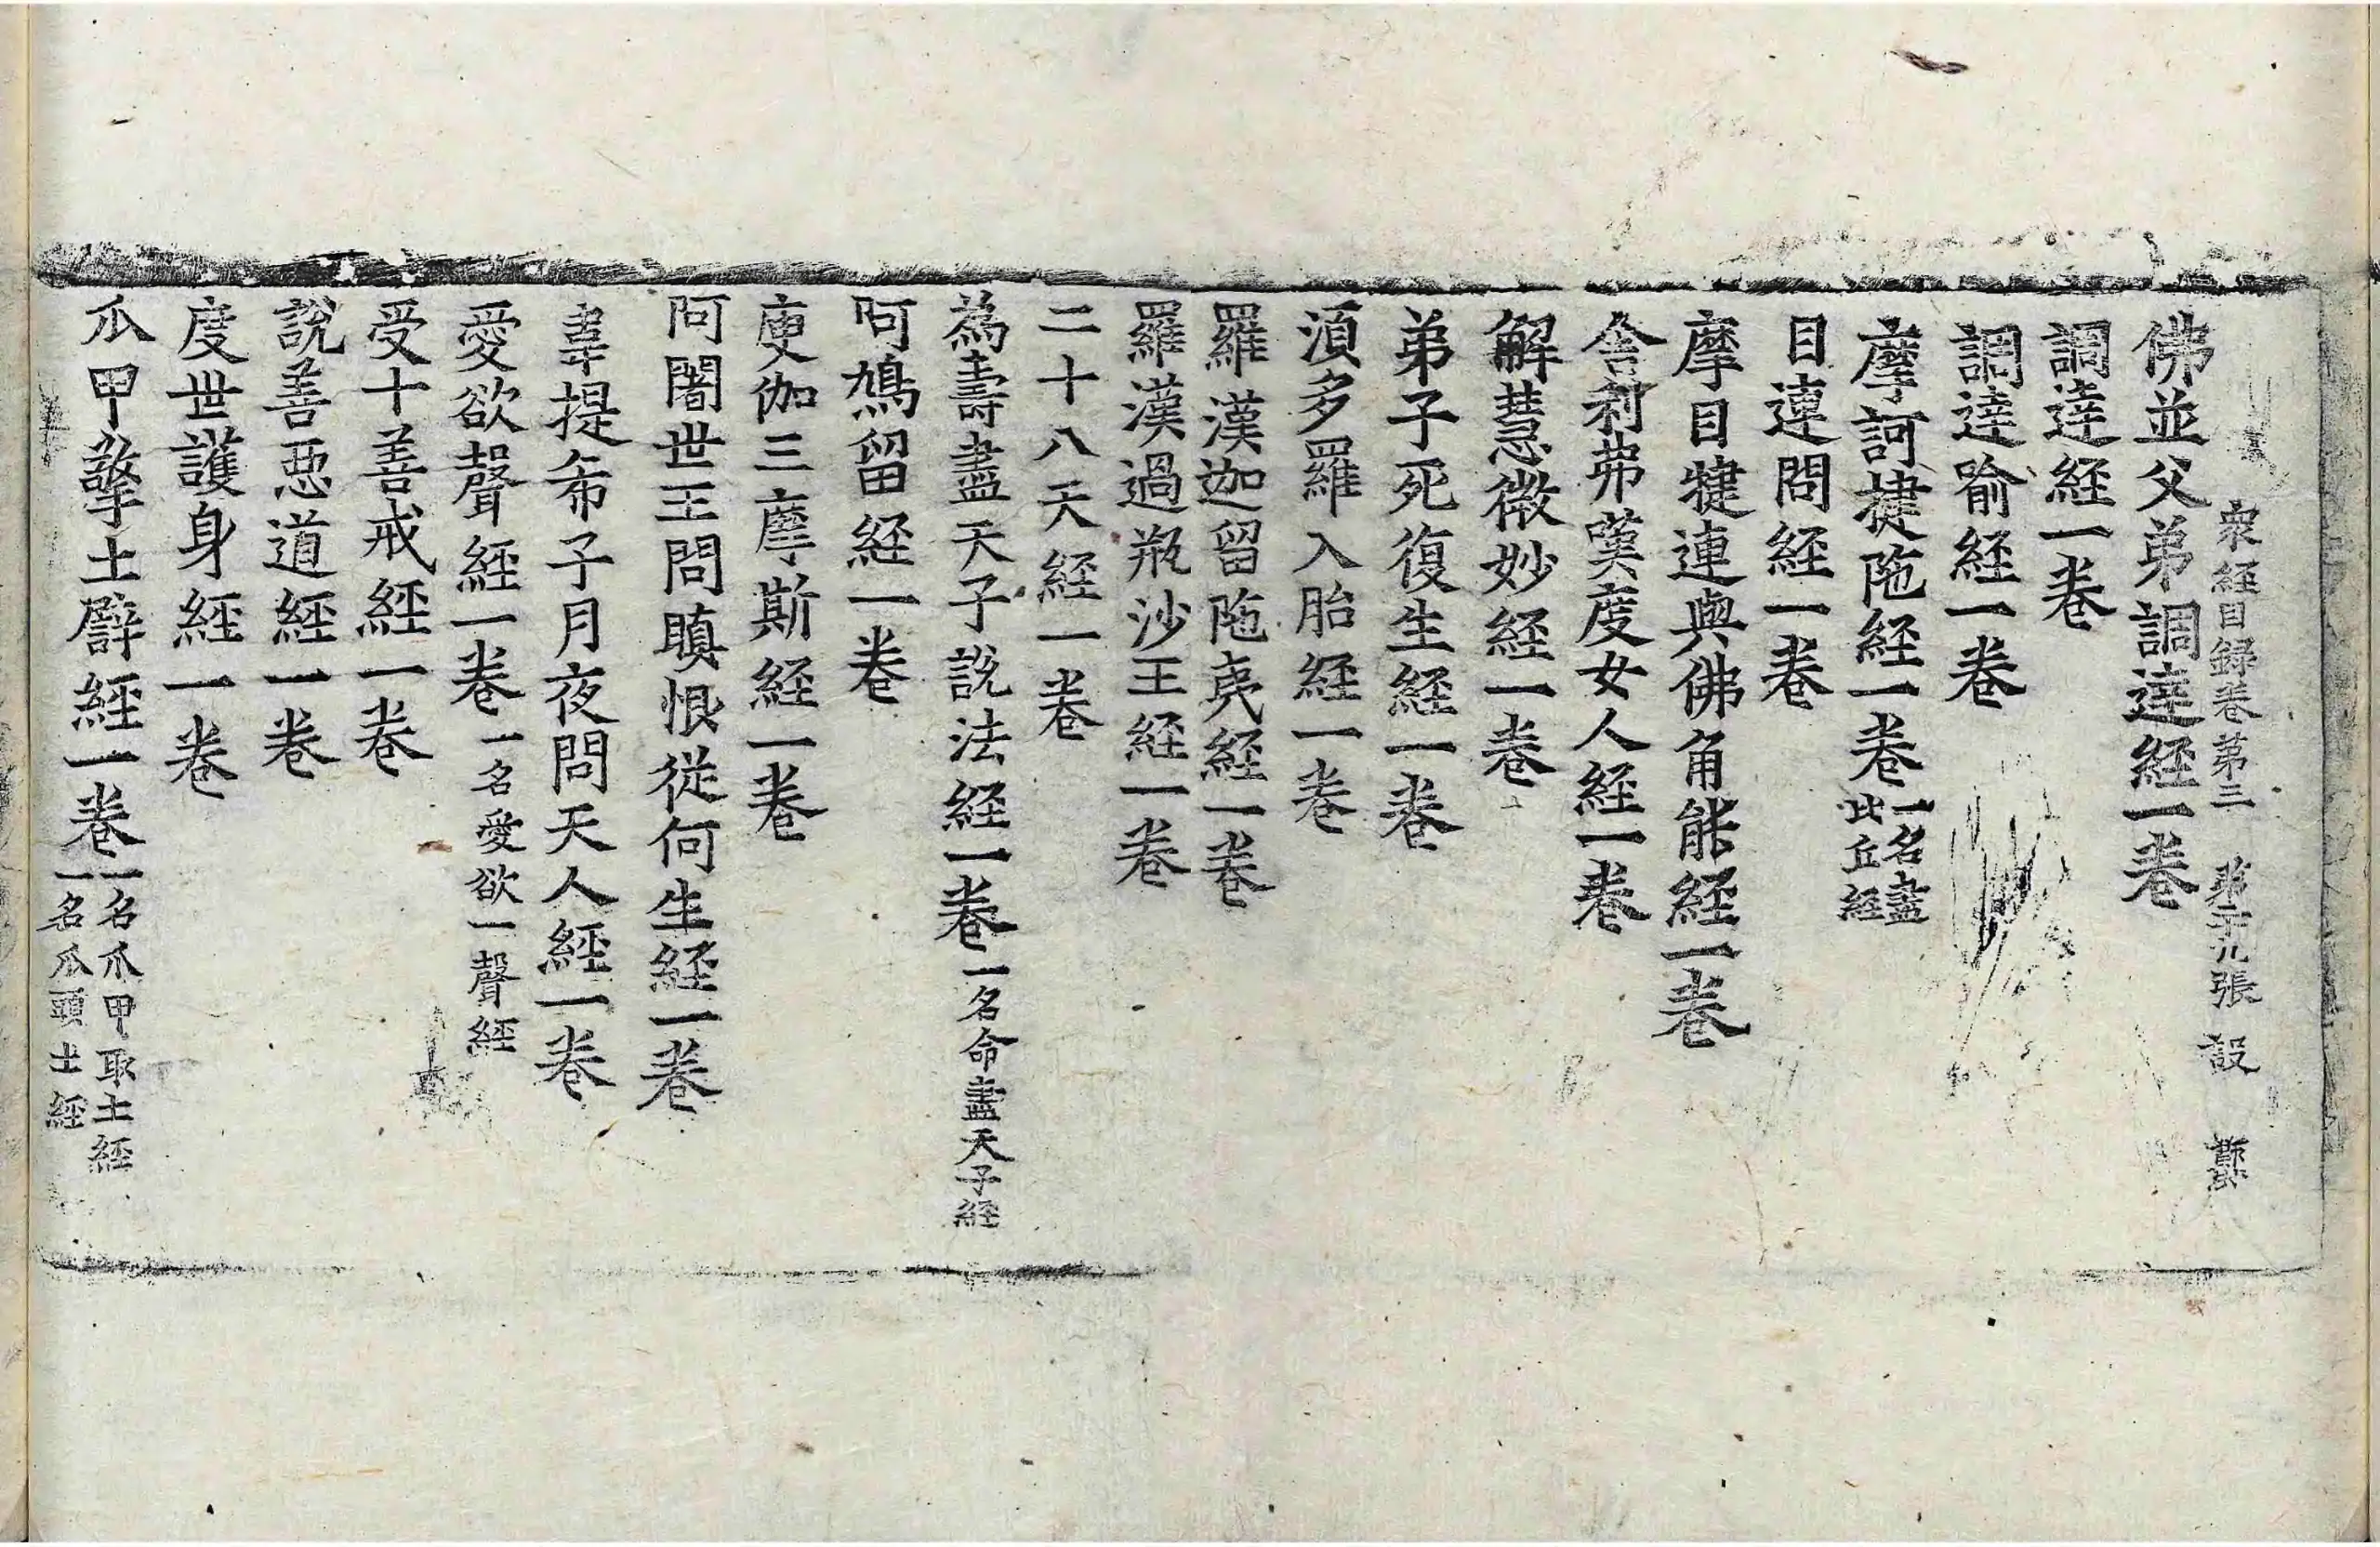 衆經目録卷第三 第二十九張 設
佛並父弟調達經一卷
調達經一卷
調達喻經一卷
摩訶揵陁經一卷 一名盡比丘經
目連問經一卷
摩目揵連與佛角能經一卷
舍利弗嘆度女人經一卷
解慧微妙經一卷
弟子死復生經一卷
湏多羅入胎經一卷
羅漢迦留陁夷經一卷
羅漢過瓶沙王經一卷
二十八天經一卷
為壽盡天子說法經一卷 一名命盡天子經
阿鳩留經一卷
庾伽三摩斯經一卷
阿闍世王問瞋恨從何生經一卷
韋提希子月夜問天人經一卷
愛欲聲經一卷 一名愛欲一聲經
受十善戒經一卷
說善惡道經一卷
度世護身經一卷
爪甲擎土譬經一卷 一名爪甲取土經 一名爪頭土經